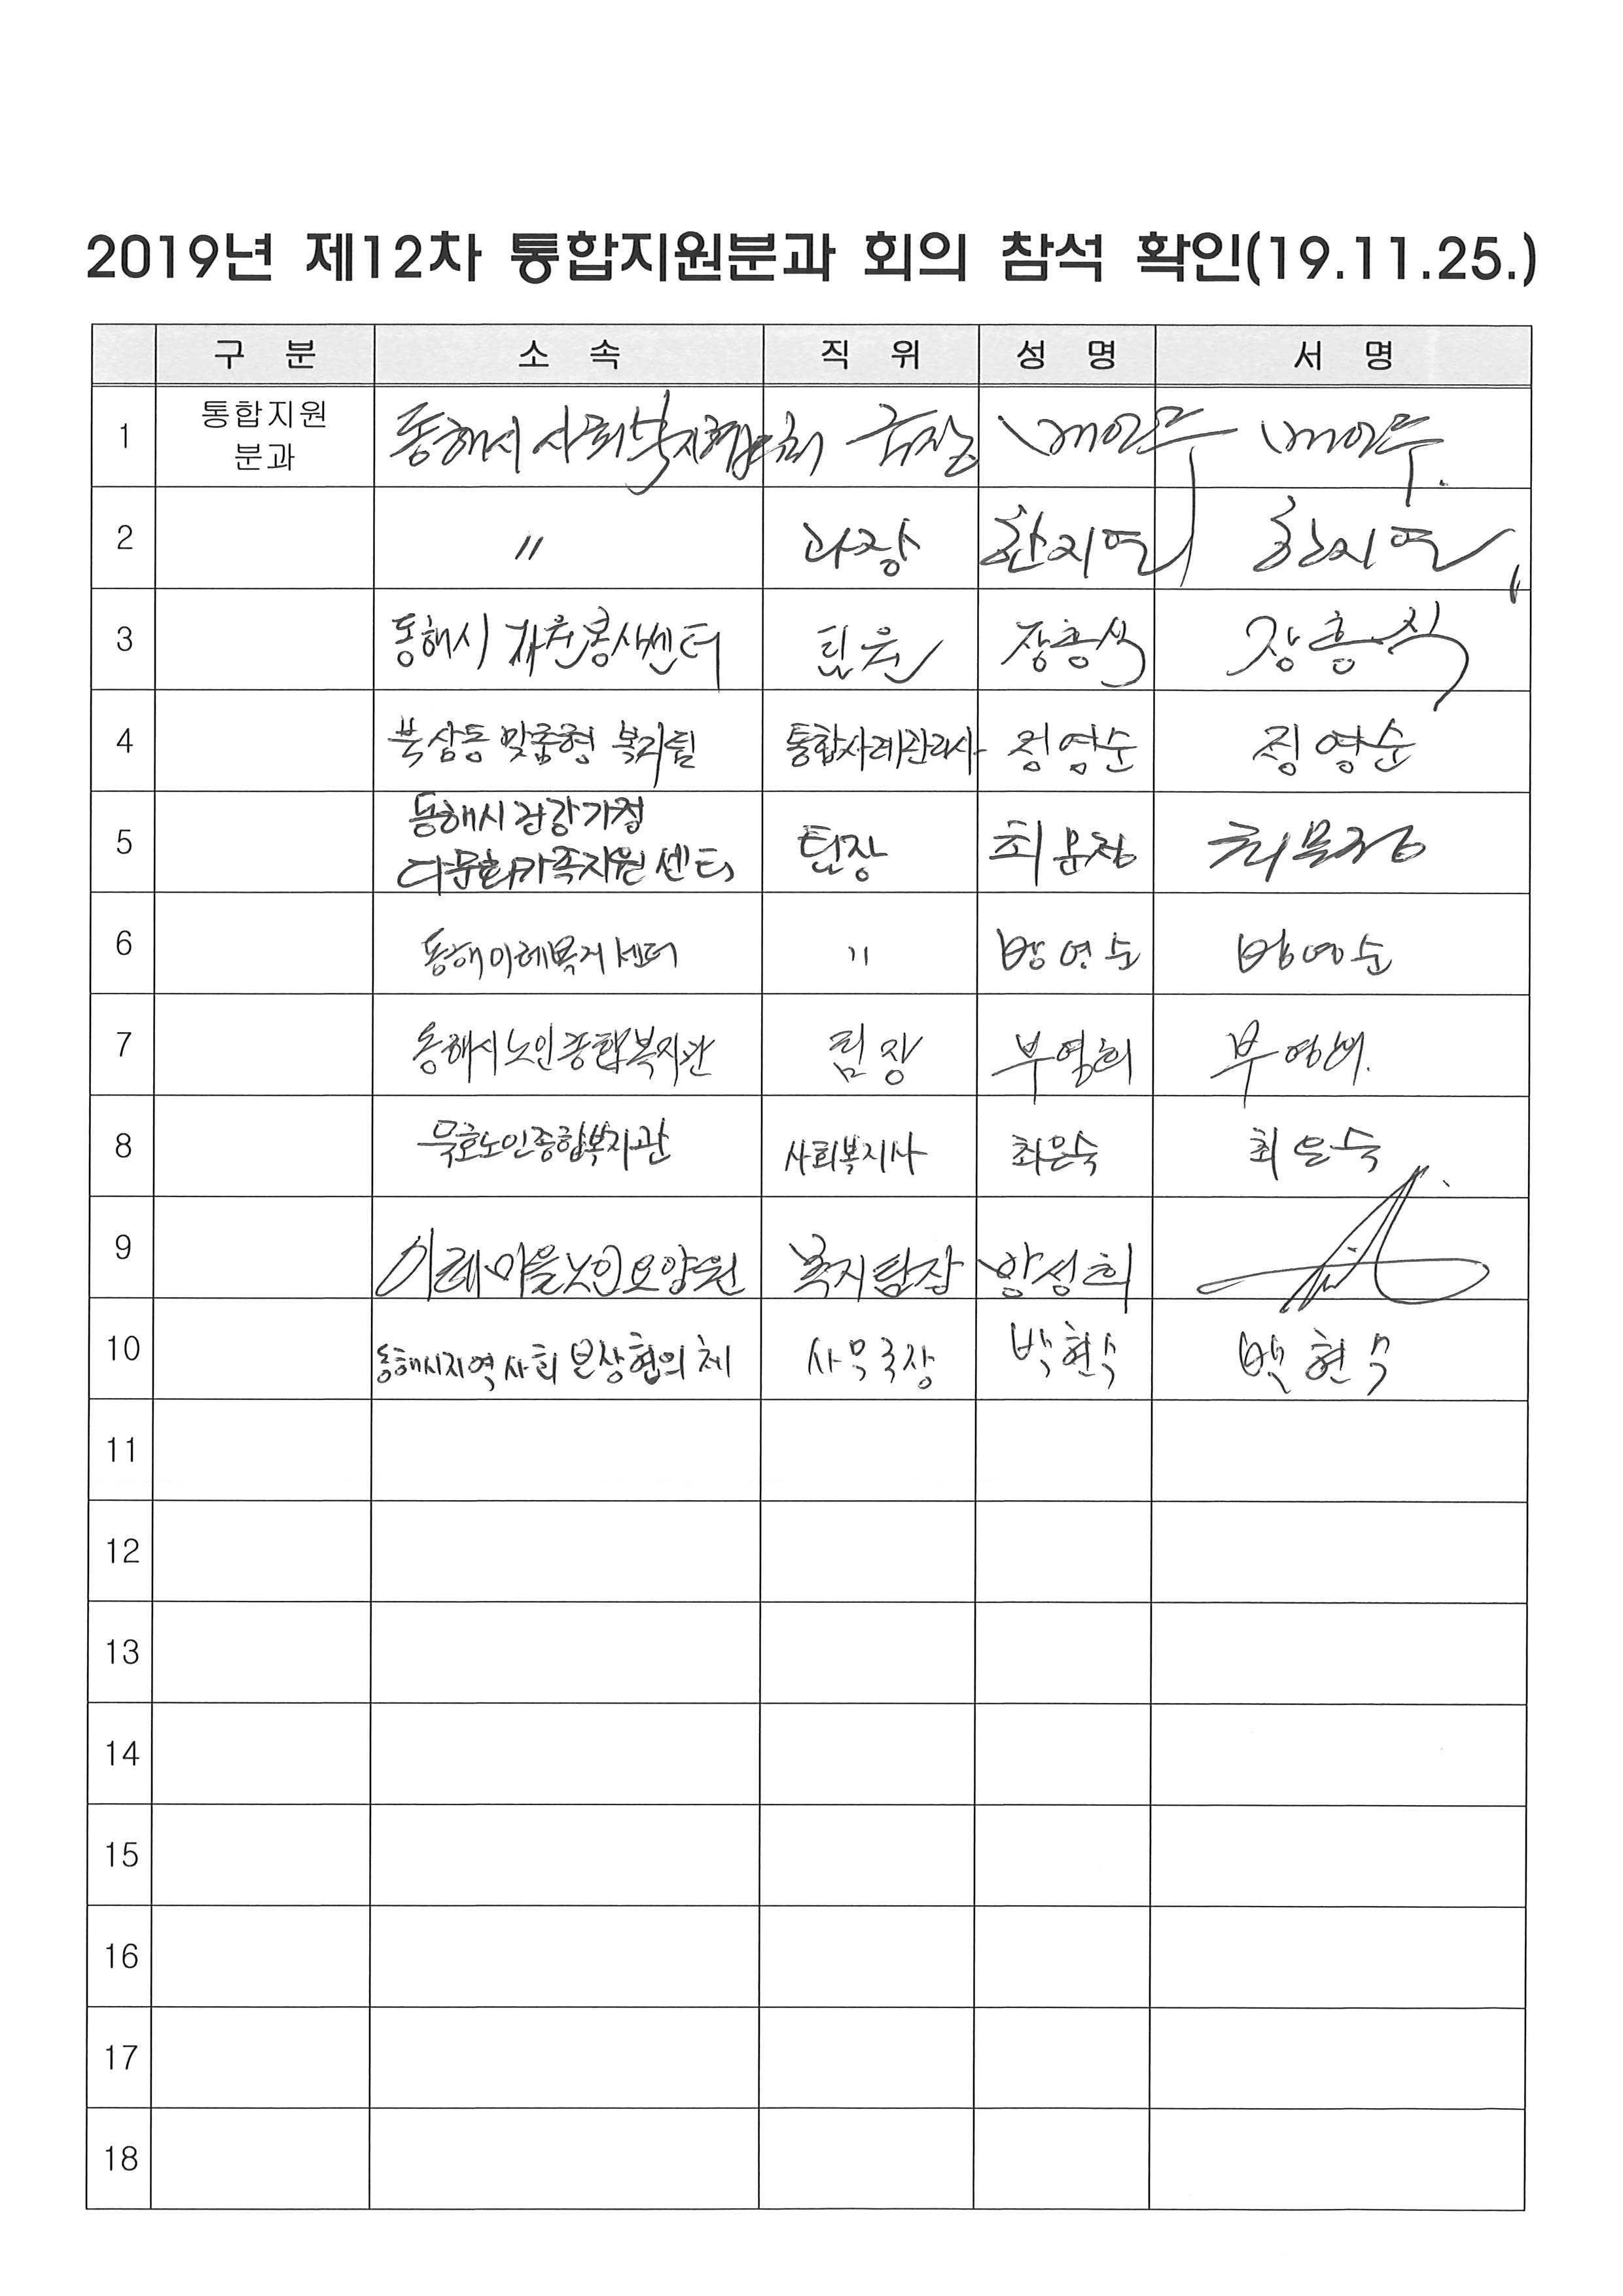 2019년 제12차 통합지원분과 회의 참석 확인(19.11.25.)
구 분 소 속 직 위 성 명 서 명
1 통합지원 분과 동해시사회복지협의회 국장
2 〃 과장 한지연 한지연
3 동해시 자원봉사센터 팀원 장흥식 장흥식
4 북삼동 맞춤형 복지팀 통합사례관리사 정영순 정영순
5 동해시건강가정
다문화가족지원센터 팀장 최문정 최문정
6 동해이레복지센터 〃
7 동해시노인종합복지관 팀장 부영희 부영희
8 묵호노인종합복지관 사회복지사 최은숙 최은숙
9 이레마을노인요양원 복지팀장
10 동해시지역사회보장협의체 사무국장 박현수 박현수
11
12
13
14
15
16
17
18